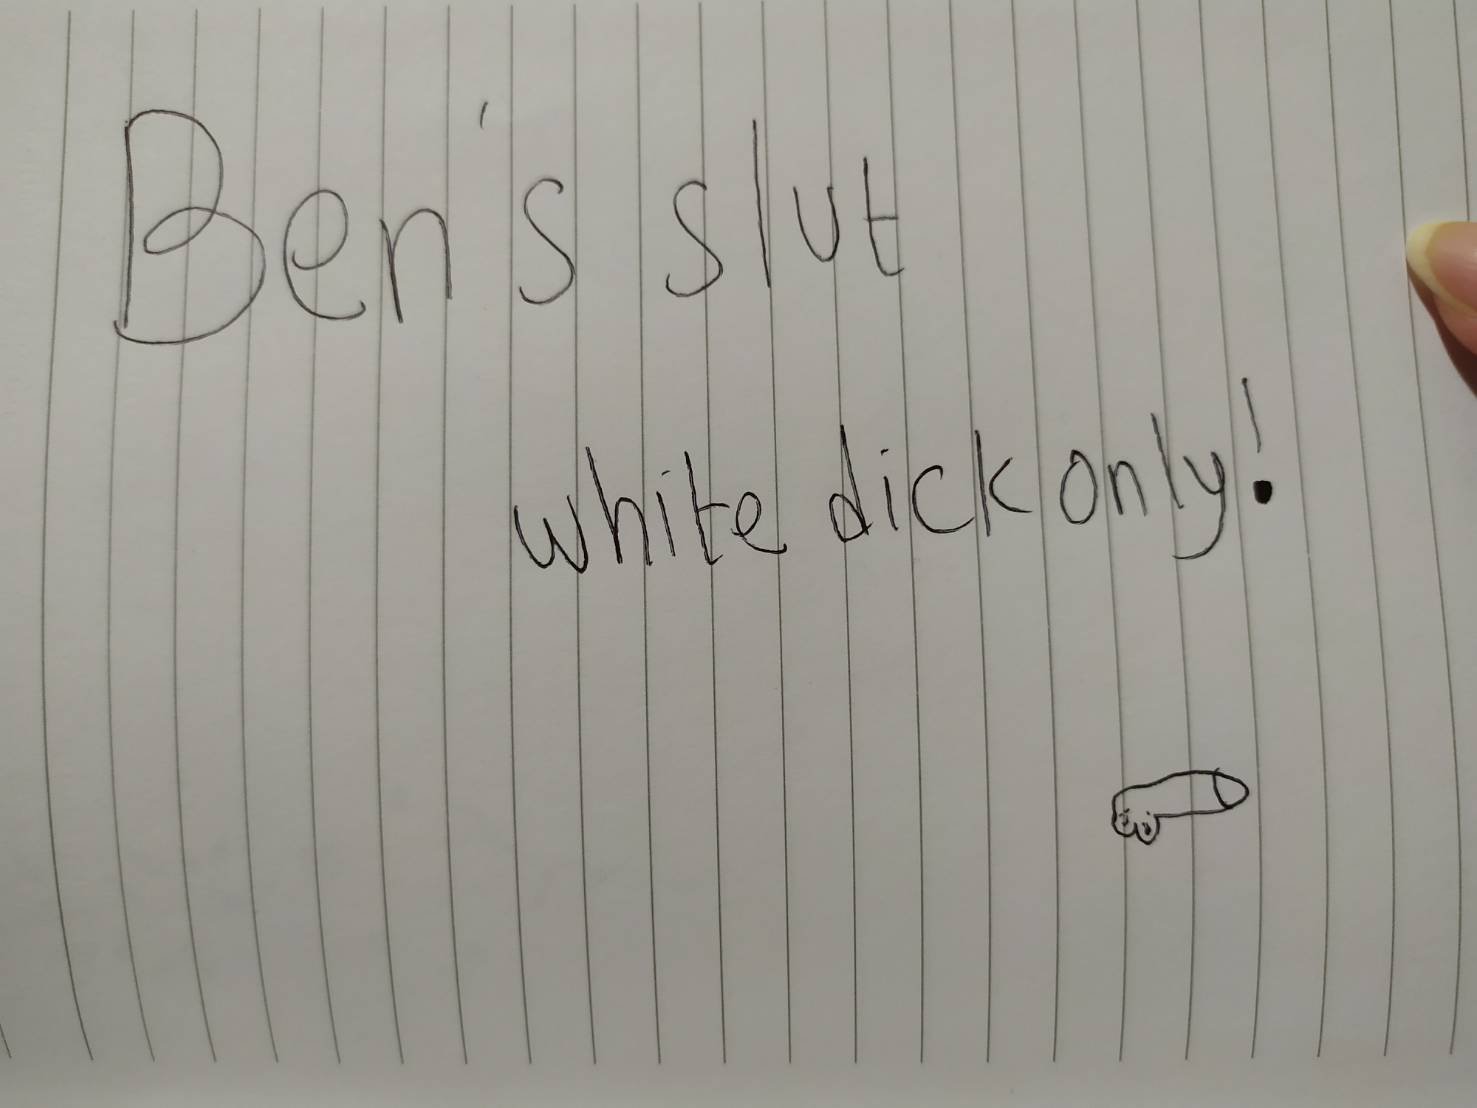 Ben's slut
white dick only!